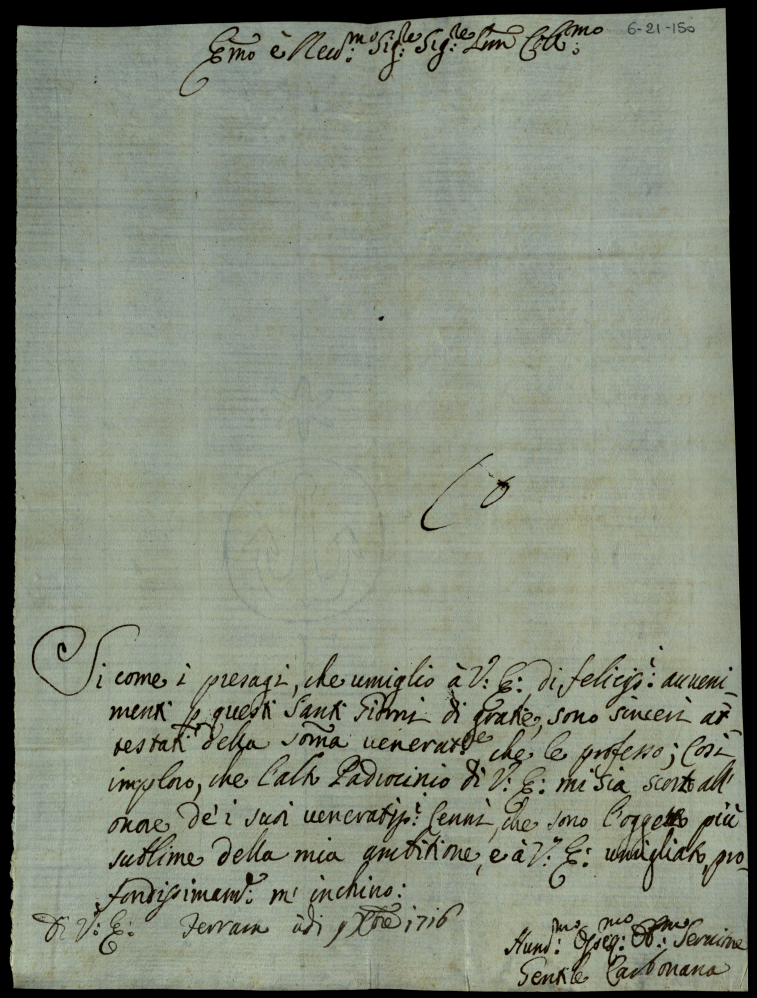 6-21-150
Emo è Reud:mo Sig:re Sig:re Pnn Coll:mo
Si come i presagi, che umiglio à V: E: di feliciss:i auueni-
menti p questi Santi Giorni di gratie, sono sinceri at-
testati della soma venerat:ne che le professo; Così
imploro, che l'alto Padrocinio di V: E: mi sia scorta all'
onore de i suoi veneratiss:i Cenni, che sono l'oggetto più
sublime della mia ambitione, e à V: E: umigliato, pro-
fondissimam:te m'inchino:
Di V: E: Ferrara adi Xbre 1716
Hum:mo Osseq:mo Ob:mo Seruitore
Gentile Carbonana